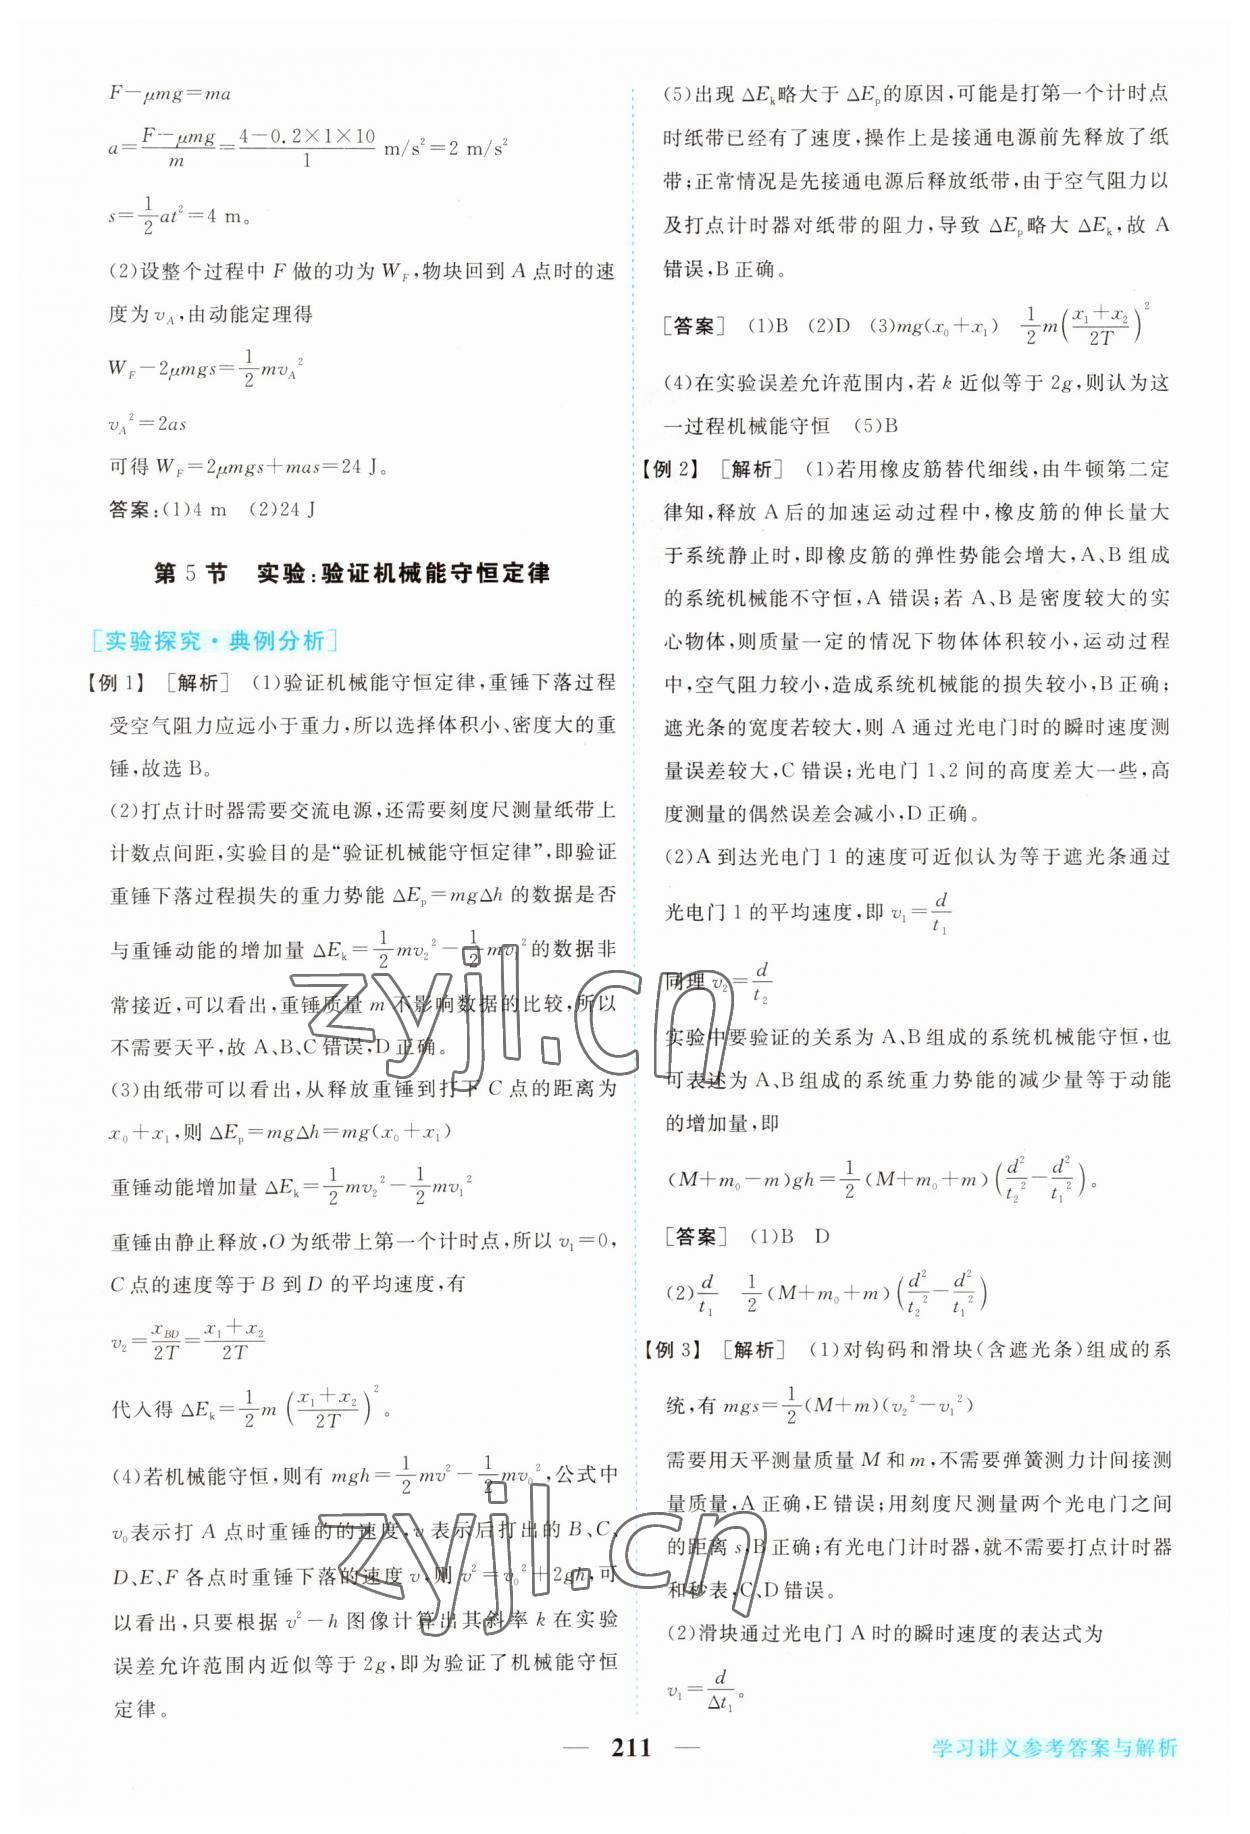 F－μmg＝ma
a＝(F－μmg)/m＝(4－0.2×1×10)/1 m/s²＝2 m/s²
s＝1/2 at²＝4 m。
(2)设整个过程中 F 做的功为 W_F,物块回到 A 点时的速
度为 v_A,由动能定理得
W_F－2μmgs＝1/2 mv_A²
v_A²＝2as
可得 W_F＝2μmgs＋mas＝24 J。
答案:(1)4 m　(2)24 J
第 5 节　实验:验证机械能守恒定律
[实验探究·典例分析]
【例 1】　[解析]　(1)验证机械能守恒定律,重锤下落过程
受空气阻力应远小于重力,所以选择体积小、密度大的重
锤,故选 B。
(2)打点计时器需要交流电源,还需要刻度尺测量纸带上
计数点间距,实验目的是“验证机械能守恒定律”,即验证
重锤下落过程损失的重力势能 ΔE_p＝mgΔh 的数据是否
与重锤动能的增加量 ΔE_k＝1/2 mv₂²－1/2 mv₁²的数据非
常接近,可以看出,重锤质量 m 不影响数据的比较,所以
不需要天平,故 A、B、C 错误,D 正确。
(3)由纸带可以看出,从释放重锤到打下 C 点的距离为
x₀＋x₁,则 ΔE_p＝mgΔh＝mg(x₀＋x₁)
重锤动能增加量 ΔE_k＝1/2 mv₂²－1/2 mv₁²
重锤由静止释放,O 为纸带上第一个计时点,所以 v₁＝0,
C 点的速度等于 B 到 D 的平均速度,有
v₂＝x_BD/2T＝(x₁＋x₂)/2T
代入得 ΔE_k＝1/2 m((x₁＋x₂)/2T)²。
(4)若机械能守恒,则有 mgh＝1/2 mv²－1/2 mv₀²,公式中
v₀表示打 A 点时重锤的的速度,v 表示后打出的 B、C、
D、E、F 各点时重锤下落的速度 v,则 v²＝v₀²＋2gh,可
以看出,只要根据 v²－h 图像计算出其斜率 k 在实验
误差允许范围内近似等于 2g,即为验证了机械能守恒
定律。
(5)出现 ΔE_k略大于 ΔE_p的原因,可能是打第一个计时点
时纸带已经有了速度,操作上是接通电源前先释放了纸
带;正常情况是先接通电源后释放纸带,由于空气阻力以
及打点计时器对纸带的阻力,导致 ΔE_p略大 ΔE_k,故 A
错误,B 正确。
[答案]　(1)B　(2)D　(3)mg(x₀＋x₁)　1/2 m((x₁＋x₂)/2T)²
(4)在实验误差允许范围内,若 k 近似等于 2g,则认为这
一过程机械能守恒　(5)B
【例 2】　[解析]　(1)若用橡皮筋替代细线,由牛顿第二定
律知,释放 A 后的加速运动过程中,橡皮筋的伸长量大
于系统静止时,即橡皮筋的弹性势能会增大,A、B 组成
的系统机械能不守恒,A 错误;若 A、B 是密度较大的实
心物体,则质量一定的情况下物体体积较小,运动过程
中,空气阻力较小,造成系统机械能的损失较小,B 正确;
遮光条的宽度若较大,则 A 通过光电门时的瞬时速度测
量误差较大,C 错误;光电门 1、2 间的高度差大一些,高
度测量的偶然误差会减小,D 正确。
(2)A 到达光电门 1 的速度可近似认为等于遮光条通过
光电门 1 的平均速度,即 v₁＝d/t₁
同理 v₂＝d/t₂
实验中要验证的关系为 A、B 组成的系统机械能守恒,也
可表述为 A、B 组成的系统重力势能的减少量等于动能
的增加量,即
(M＋m₀－m)gh＝1/2 (M＋m₀＋m)(d²/t₂²－d²/t₁²)。
[答案]　(1)B　D
(2)d/t₁　1/2 (M＋m₀＋m)(d²/t₂²－d²/t₁²)
【例 3】　[解析]　(1)对钩码和滑块(含遮光条)组成的系
统,有 mgs＝1/2 (M＋m)(v₂²－v₁²)
需要用天平测量质量 M 和 m,不需要弹簧测力计间接测
量质量,A 正确,E 错误;用刻度尺测量两个光电门之间
的距离 s,B 正确;有光电门计时器,就不需要打点计时器
和秒表,C、D 错误。
(2)滑块通过光电门 A 时的瞬时速度的表达式为
v₁＝d/Δt₁。
zyjl.cn
zyjl.cn
— 211 —
学习讲义参考答案与解析